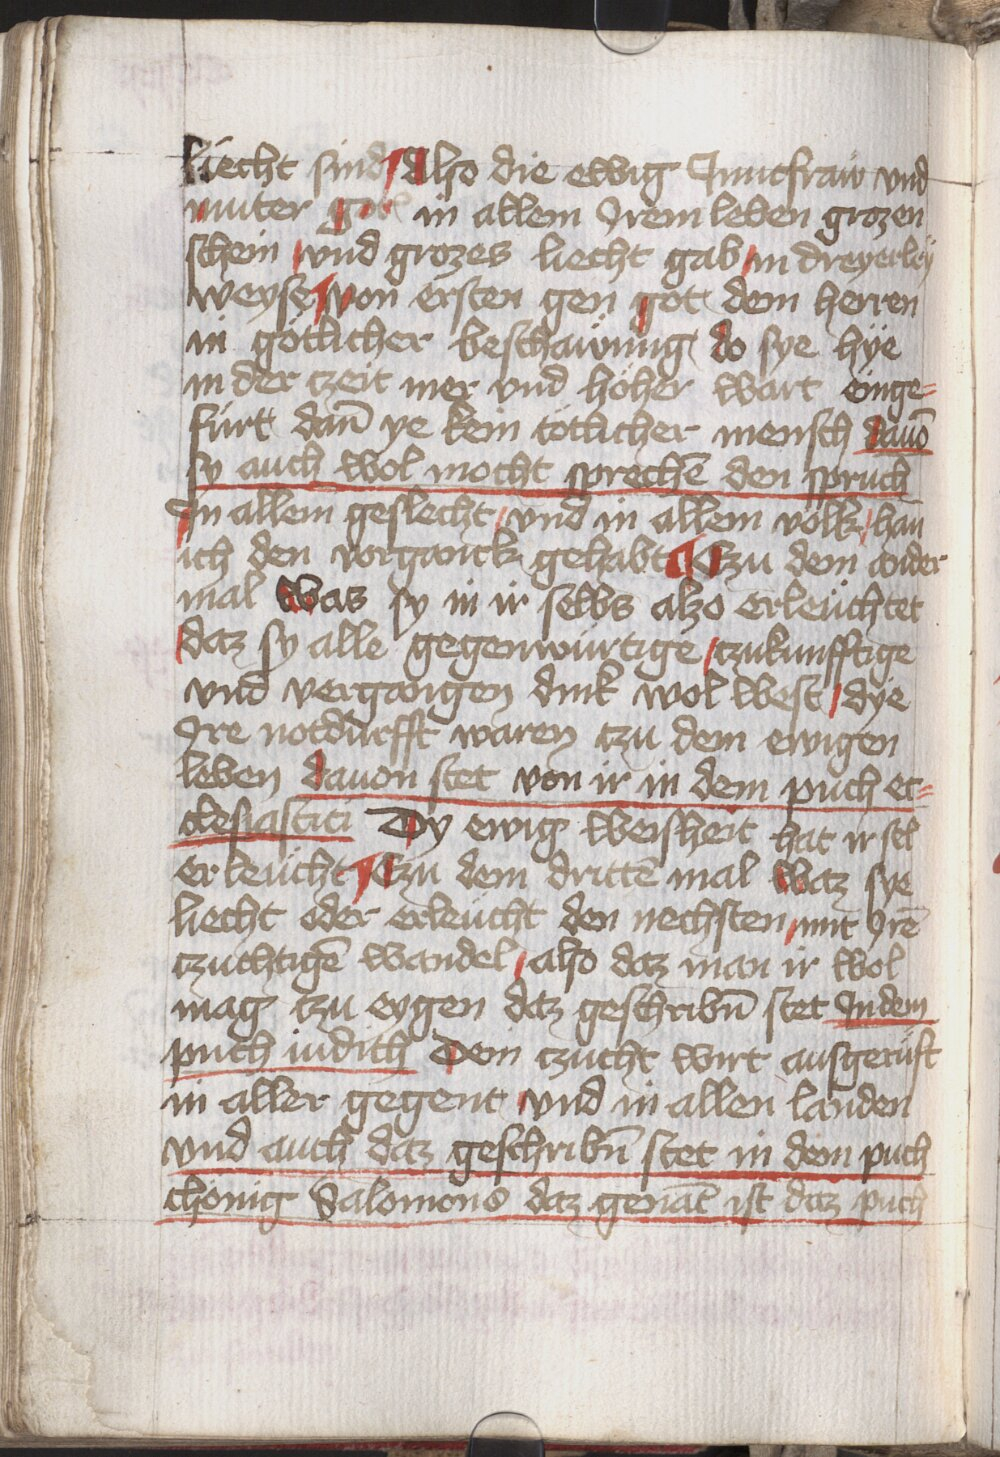 liecht sind Also die ewig Junckfraw vnd
muter got in allem Irem leben grozen
schein vnd grozes liecht gab in dreyerley
weyse von ersten gen got dem herren
in gotlicher beschawung do sye hye
in der czeit mer vnd hoher wart einge=
fürt dan̄ ye kein totlicher mensch dauō
sy auch wol mocht sprechē den spruch
In allem geslecht vnd in allem volk han
ich den vorganck gehabt Czu dem ander
mal Was sy in ir selbs also erleuchtet
daz sy alle gegenwürtige czukunfftige
vnd vergangen dink wol west dye
Ire notdurfft waren czu dem ewigen
leben dauon stet von ir in dem puch ec=
clesiastici Dy ewig weisheit hat ir sel
erleucht Czu dem drittē mal waz sye
liecht oder erleucht den nechsten mit Irē
czuchtigē wandel also daz man ir wol
mag czu eygen daz geschribn̄ stet In dem
puch iudith Dein czucht wirt ausgerüft
in aller gegent vnd in allen landen
vnd auch daz geschribn̄ stet in dem puch
chönig Salomons daz genāt ist daz puch